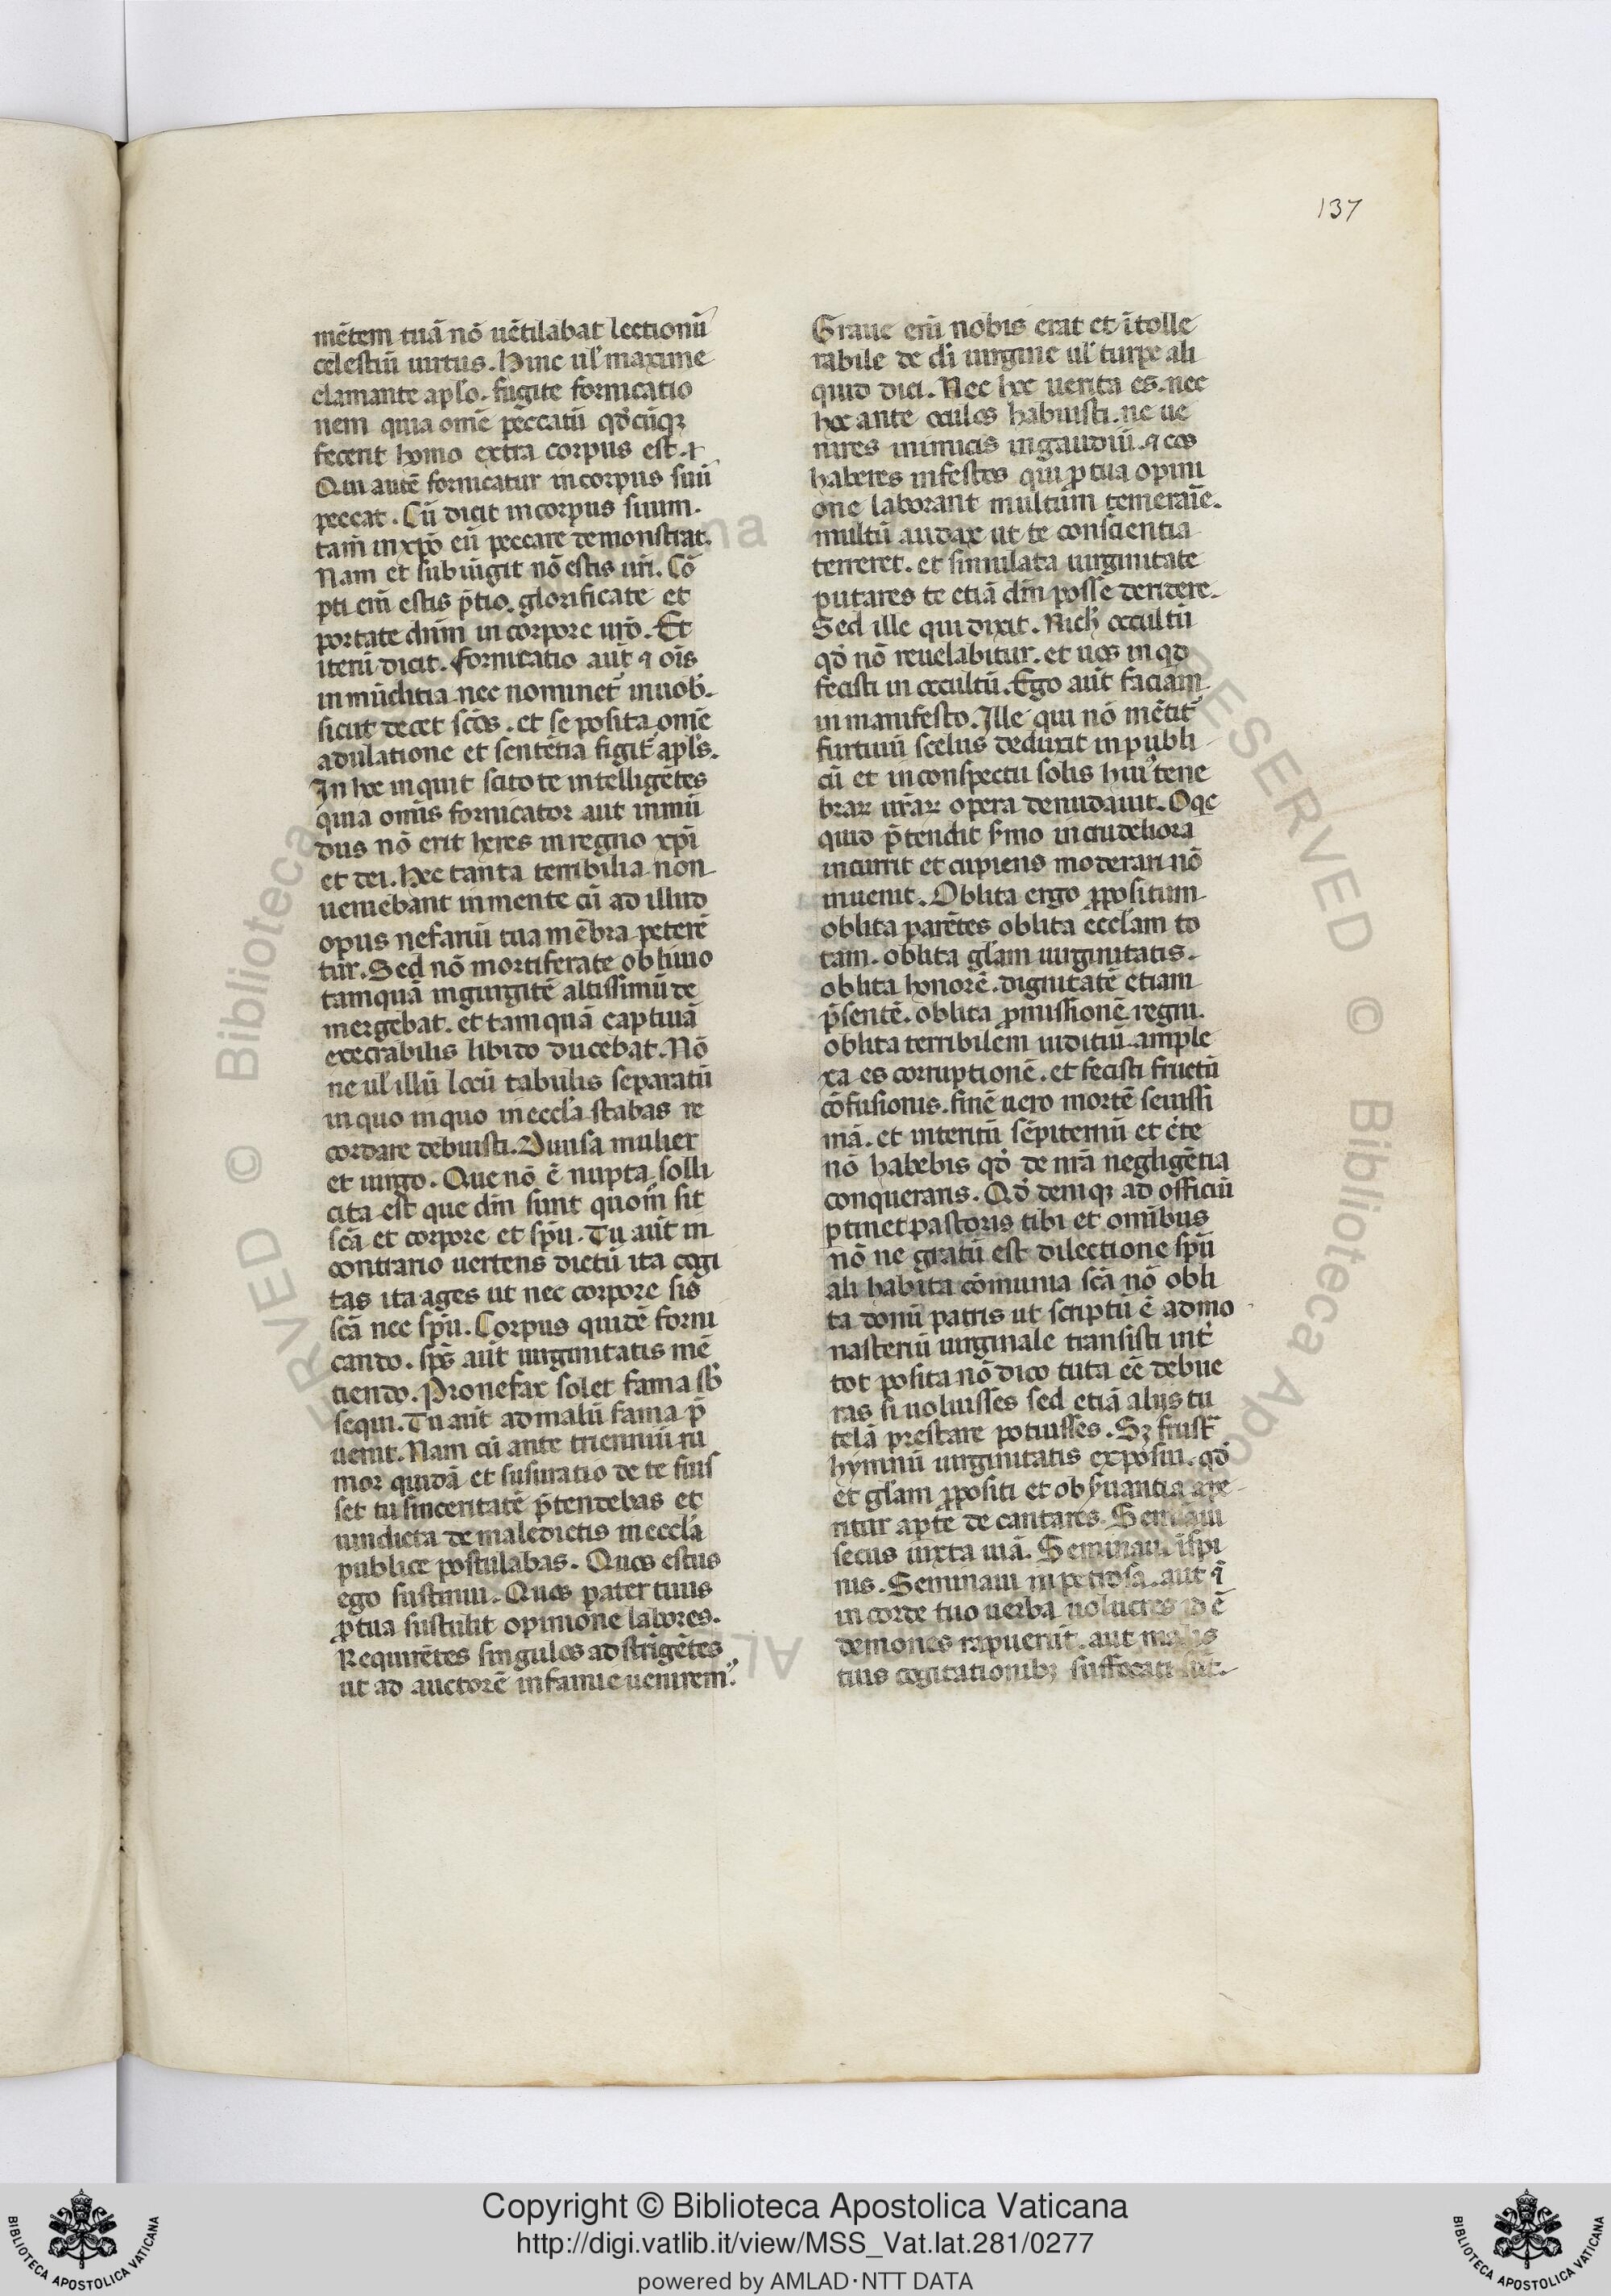 137
mētem tuā nō uētilabat lectionū
celestiū uirtus. Hinc ul' maxime
clamante aplo. fugite fornicatio
nem quia omē peccatū qd̓cūqꝫ
fecerit homo extra corpus est. ⁊
Qui autē fornicatur in corpus suū
peccat. Cū dicit in corpus suum.
tam̄ in xp̄o eū peccare demonstrat.
Nam et subiūgit nō estis ur̄i. Cō
pti em̄ estis p̄tio. glorificate et
portate dn̄m in corpore ur̄o. Et
iterū dicit. Fornicatio aut̄ ⁊ ois̄
inmūditia nec nominet᷑ in uob̓.
sicut decet sc̄os. et se posita omē
adulatione et sentētia figit᷑ apl's.
In hoc inquit scitote intelligētes
quia omīs fornicator aut inmū
dus nō erit heres in regno xp̄i
et dei. Hec tanta terribilia non
ueniebant in mente cū ad illud
opus nefariū tua mēbra peterē
tur. Sed nō mortiferate obliuio
tamquā in gurgitē altissimū de
mergebat. et tamquā captiuā
execrabilis libido ducebat. Nō
ne ul' illū locū tabulis separatū
in quo in quo in eccl'a stabas re
cordare debuisti. Diuisa mulier
et uirgo. Que nō ē nupta solli
cita est que dn̄i sunt quom̄ sit
sc̄a et corpore et spū. Tu aut̄ in
contrario uertens dictū ita cogi
tas ita ages ut nec corpore sis
sc̄a nec spū. Corpus quidē forni
cando. sps̄ aut̄ uirginitatis mē
tiendo. Pro nefax solet fama sb̓
sequi. Tu aut̄ ad malū fama p̄
uenit. Nam cū ante trienniū ru
mor quidā et susuratio de te fuis
set tu sinceritatē p̄tendebas et
uindicta de maledictis in eccl'a
publice postulabas. Quos estus
ego sustinui. Quos pater tuus
ꝓ tua sustulit opinione labores.
Requirētes singulos adstrigētes
ut ad auctorē infamie uenirem᷑.
Graue em̄ nobis erat et ītolle
rabile de dī uirgine ul' turpe ali
quid dici. Nec hoc uerita es. nec
hoc ante oculos habuisti. ne ue
nires inimicis in gaudiū. ⁊ eos
haberes infestos qui ꝓ tua opini
one laborant multum temeraīe.
multū audax ut te conscientia
terreret. et simulata uirginitate
putares te etiā dm̄ posse deridere.
Sed ille qui dixit. Nich' occultū
qd̓ nō reuelabitur. et uos in qd
fecisti in occultū. Ego aut̄ faciam
in manifesto. Ille qui nō mētit᷑
furtiuū scelus deduxit in publi
cū et in conspectu solis hui᷒ tene
braꝝ ur̄aꝝ opera denudauit. Oqe
quid p̄tendit s̓mo in crudeliora
incurrit et cupiens moderari nō
inuenit. Oblita ergo ꝓpositum
oblita parētes oblita eccl'am to
tam. oblita gl'am uirginitatis.
oblita honorē. dignitatē etiam
p̄sentē. oblita ꝓmissionē regni.
oblita terribilem iuditiū ample
xa es corruptionē. et fecisti fructū
cōfusionis. finē uero mortē seuissi
mā. et interitū sēpiternū et ete
nō habebis qd̓ de nr̄a negligētia
conqueraris. Qd̓ deniqꝫ ad officiū
ꝑtinet pastoris tibi et omībus
nō ne gratū est dilectione spū
ali habita cōmunia sc̄a nō obli
ta domū patris ut scriptū ē ad mo
nasteriū uirginale transisti int᷑
tot posita nō dico tuta eē debue
ras si uoluisses sed etiā alijs tu
telā prestare potuisses. Sꝫ frust᷑
hymnū uirginitatis exposui. qd̓
et gl'am ꝓpositi et obs̓uantia axe
ritur apte de cantares. Seminaui
secus iuxta uiā. Seminaui īspi
nis. Seminaui in petrosa. aut ī
in corde tuo uerba uolucres id ē
demones rapuerūt. aut malis
tuis cogitationibꝫ suffocati sūt.
Copyright © Biblioteca Apostolica Vaticana
http://digi.vatlib.it/view/MSS_Vat.lat.281/0277
powered by AMLAD·NTT DATA
BIBLIOTECA APOSTOLICA VATICANA
BIBLIOTECA APOSTOLICA VATICANA